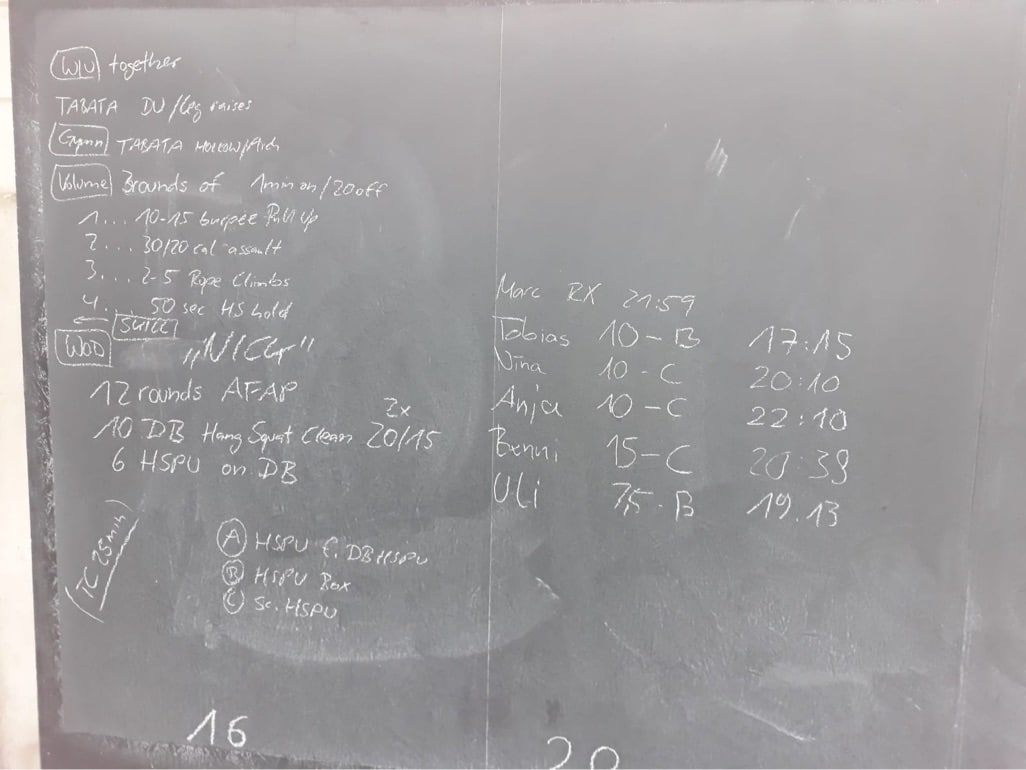 W/U together
TABATA DU/leg raises
Gymn TABATA Hollow/Arch
Volume 3 rounds of 1min on/20 off
1... 10-15 burpee Pull Up
2... 30/20 cal assault
3... 2-5 Rope Climbs
4. 50 sec HS hold
SKILL
WOD „NICK"
12 rounds AFAP
10 DB Hang Squat Clean 2x 20/15
6 HSPU on DB
TC 25min
A HSPU DBHSPU
B HSPU Box
C Sc. HSPU
16
Marc RX 21:59
Tobias 10-B 17:15
Nina 10-C 20:10
Anja 10-C 22:10
Benni 15-C 20:39
Uli 7,5-B 19.13
20